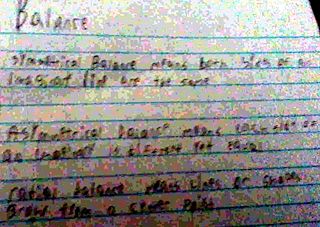 Balance
symmetrical Balance means both sides of an
imaginary line are the same
Asymmetrical balance means each side of
an is different yet equal
radial balance means lines or shapes
from a center point